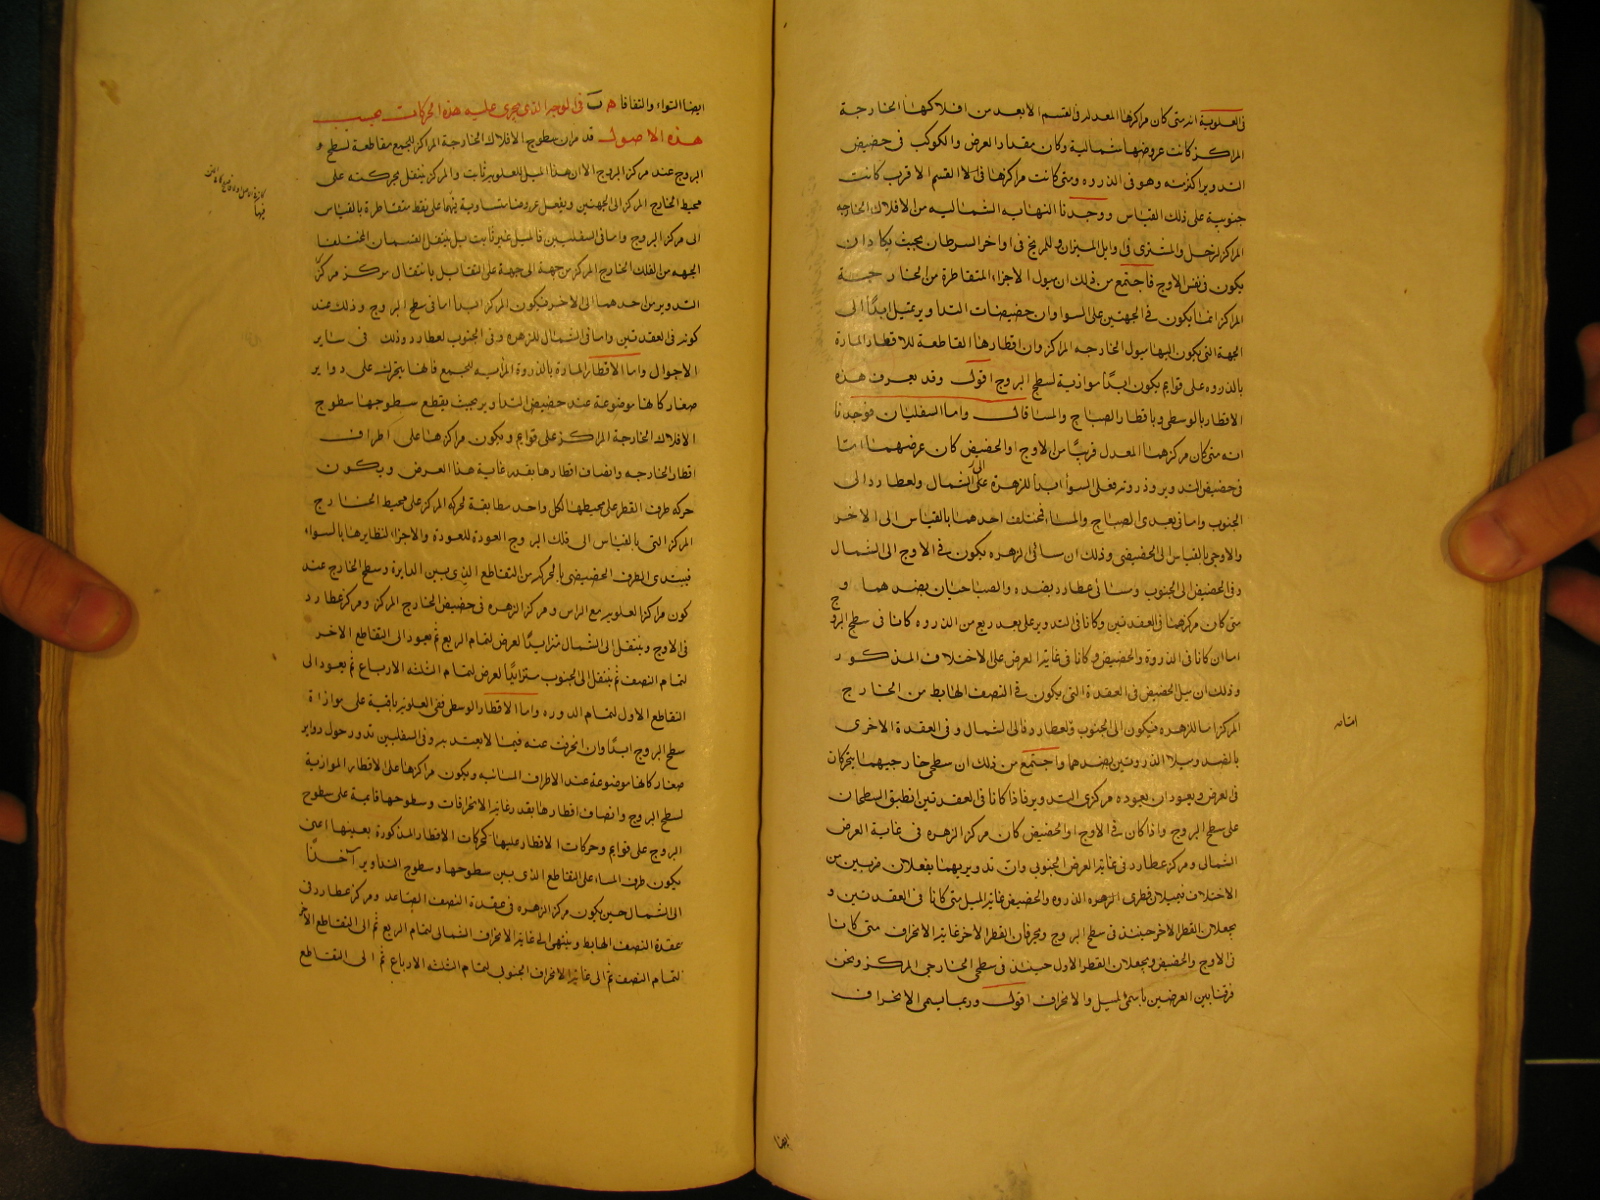 فى العلوية انه متى كان مراكزها المعدلة فى القسم الابعد من افلاكها الخارجة
المراكز كانت عروضها شمالية وكان مقدار العرض والكوكب فى حضيض
التدوير اكثر منه وهو فى الذروه ومتى كانت مراكزها فى الا القسم الاقرب كانت
جنوبية على ذلك القياس ووجدنا النهاية الشماليه من الافلاك الخارجه
المراكز لزحل والمشترى فى اوايل الميزان وللمريخ فى اواخر السرطان بحيث يكاد ان
يكون فى نفس الاوج فاجتمع من ذلك ان ميول الاجزاء المتقاطرة من الخارجة
المراكز انما يكون فى الجهتين على السوا وان حضيضات التداوير تميل ابدا الى
الجهة التى يكون اليها ميول الخارجه المراكز وان اقطارها القاطعة للاقطار المارة
بالذروه على قوايم يكون ابدا موازية لسطح البروج اقول وقد يعرف هذه
الاقطار بالوسطى وباقطار الصباح والمسا قال واما السفليان فوجدنا
انه متى كان مركزهما المعدل قريبا من الاوج او الحضيض كان عرضهما اما
فى حضيض التدوير وذروته فعلى السوا ابدا للزهرة الى الشمال ولعطارد الى
الجنوب واما فى بعدى الصباح والمساء فمختلف احدهما بالقياس الى الاخر
والاوجى بالقياس الى الحضيضى وذلك ان مسائى الزهره يكون فى الاوج الى الشمال
وفى الحضيض الى الجنوب ومسائى عطارد بضده والصباحيان بضدهما و
متى كان مركزهما فى العقدتين وكانا فى التدوير على بعد ربع من الذروه كانا فى سطح البروج
اما ان كانا فى الذروة والحضيض وكانا فى غاية العرض على الاختلاف المذكور
وذلك ان ميل الحضيض فى العقدة التى يكون فى النصف الهابط من الخارج
المركز اما للزهره فيكون الى الجنوب ولعطارد فالى الشمال وفى العقدة الاخرى
بالضد وميلا الذروتين بضدهما واجتمع من ذلك ان سطحى خارجيهما يتحركان
فى العرض ويعودان بعوده مركزى التدوير فاذا كانا فى العقدتين انطبق السطحان
على سطح البروج واذا كان فى الاوج او الحضيض كان مركز الزهره فى غاية العرض
الشمال ومركز عطارد فى غاية العرض الجنوبى وان تدويريهما يفعلان ضربين من
الاختلاف فيميلان قطرى الزهره الذروه والحضيض غاية الميل متى كانا فى العقدتين و
يجعلان القطر الاخر حينئذ فى سطح البروج ويحرفان القطر الاخر غاية الانحراف متى كانا
فى الاوج والحضيض ويجعلان القطر الاول حينئذ فى سطحى الخارجى المركز ونحن
فرقنا بين العرضين باسمى الميل والانحراف اقول وربما يسمى الانحراف
ايضا
ايضا التواء والتفافا ه ب فى الوجه الذى يجرى عليه هذه الحركات بحسب
هذه الاصول قد مر ان سطوح الافلاك الخارجة المراكز للجميع مقاطعة لسطح
البروج عند مركز البروج الا ان هذا الميل للعلوية ثابت والمركز ينتقل بحركته على
محيط الخارج المركز الى الجهتين ويفعل عروضا متساوية فيهما على نقط متقاطرة بالقياس
الى مركز البروج واما فى السفليين فالميل غير ثابت بل ينتقل القسمان المختلفا
الجهه من الفلك الخارج المركز من جهة الى جهة على التقابل بانتقال مركز
التدوير من احدهما الى الاخر فيكون المركز ابدا اما فى سطح البروج وذلك عند
كونه فى العقدتين واما فى الشمال للزهره وفى الجنوب لعطارد وذلك فى ساير
الاحوال واما الاقطار المارة بالذروة المرئيه للجميع فانها يتحرك على دواير
صغار كانها موضوعة عند حضيض التداوير بحيث يقطع سطوحها سطوح
الافلاك الخارجة المراكز على قوايم ويكون مراكزها على اطراف
اقطار الخارجه وانصاف اقطارها بقدر غاية هذا العرض ويكون
حركه طرف القطر على محيطها لكل واحد مطابقة لحركه المركز على محيط الخارج
المركز التى بالقياس الى فلك البروج العودة للعودة والاجزاء لنظايرها بالسواء
فيبتدى الطرف الحضيضى بالحركه من التقاطع الذى بين الدايرة وسطح الخارج عند
كون مراكز العلويه مع الراس ومركز الزهره فى حضيض الخارج المركز ومركز عطارد
فى الاوج وينتقل الى الشمال متزايدا العرض لتمام الربع ثم يعود الى التقاطع الاخر
لتمام النصف ثم ينتقل الى الجنوب متزايدا العرض لتمام الثلثه الارباع ثم يعود الى
التقاطع الاول لتمام الدوره واما الاقطار الوسطى ففى العلويه باقية على موازاة
سطح البروج ابدا وان انحرفت عنه فيما لا يعتد به وفى السفليين تدور حول دواير
صغار كانها موضوعة عند الاطراف المسائيه ويكون مراكزها على الاقطار الموازية
لسطح البروج وانصاف اقطارها بقدر غاية الانحرافات وسطوحها قايمة على سطوح
البروج على قوايم وحركات الاقطار عليها كحركات الاقطار المذكورة بعينها اعنى
يكون طرف المساء على التقاطع الذى بين سطوحها وسطوح التداوير آخذا
الى الشمال حين يكون مركز الزهره فى عقدة النصف الصاعد ومركز عطارد فى
عقدة النصف الهابط وينتهى الى غاية الانحراف الشمالى لتمام الربع ثم الى التقاطع الاخر
لتمام النصف ثم الى غاية الانحراف الجنوبى لتمام الثلثه الارباع ثم الى التقاطع